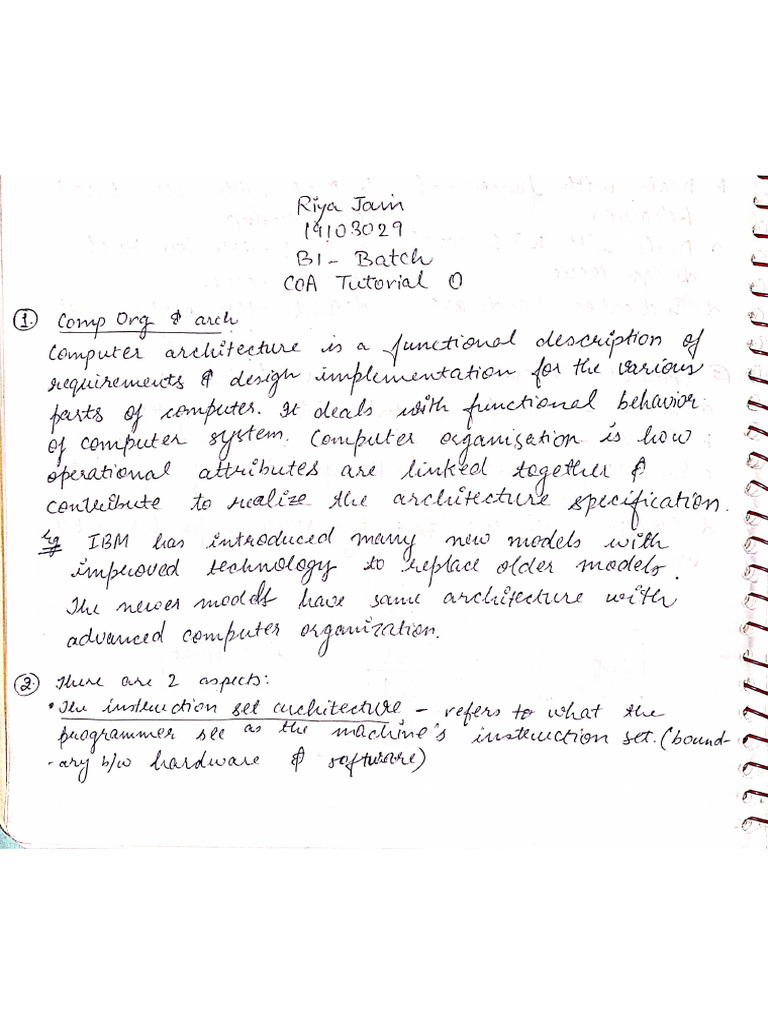 Riya Jain
19103029
B1 - Batch
COA Tutorial 0
1. Comp Org & arch
Computer architecture is a functional description of
requirements & design implementation for the various
parts of computer. It deals with functional behavior
of computer system. Computer organisation is how
operational attributes are linked together &
contribute to realize the architecture specification.
Eg IBM has introduced many new models with
improved technology to replace older models.
The newer models have same architecture with
advanced computer organization.
2. There are 2 aspects:
• The instruction set architecture - refers to what the
programmer see as the machine's instruction set. (bound-
-ary b/w hardware & software)